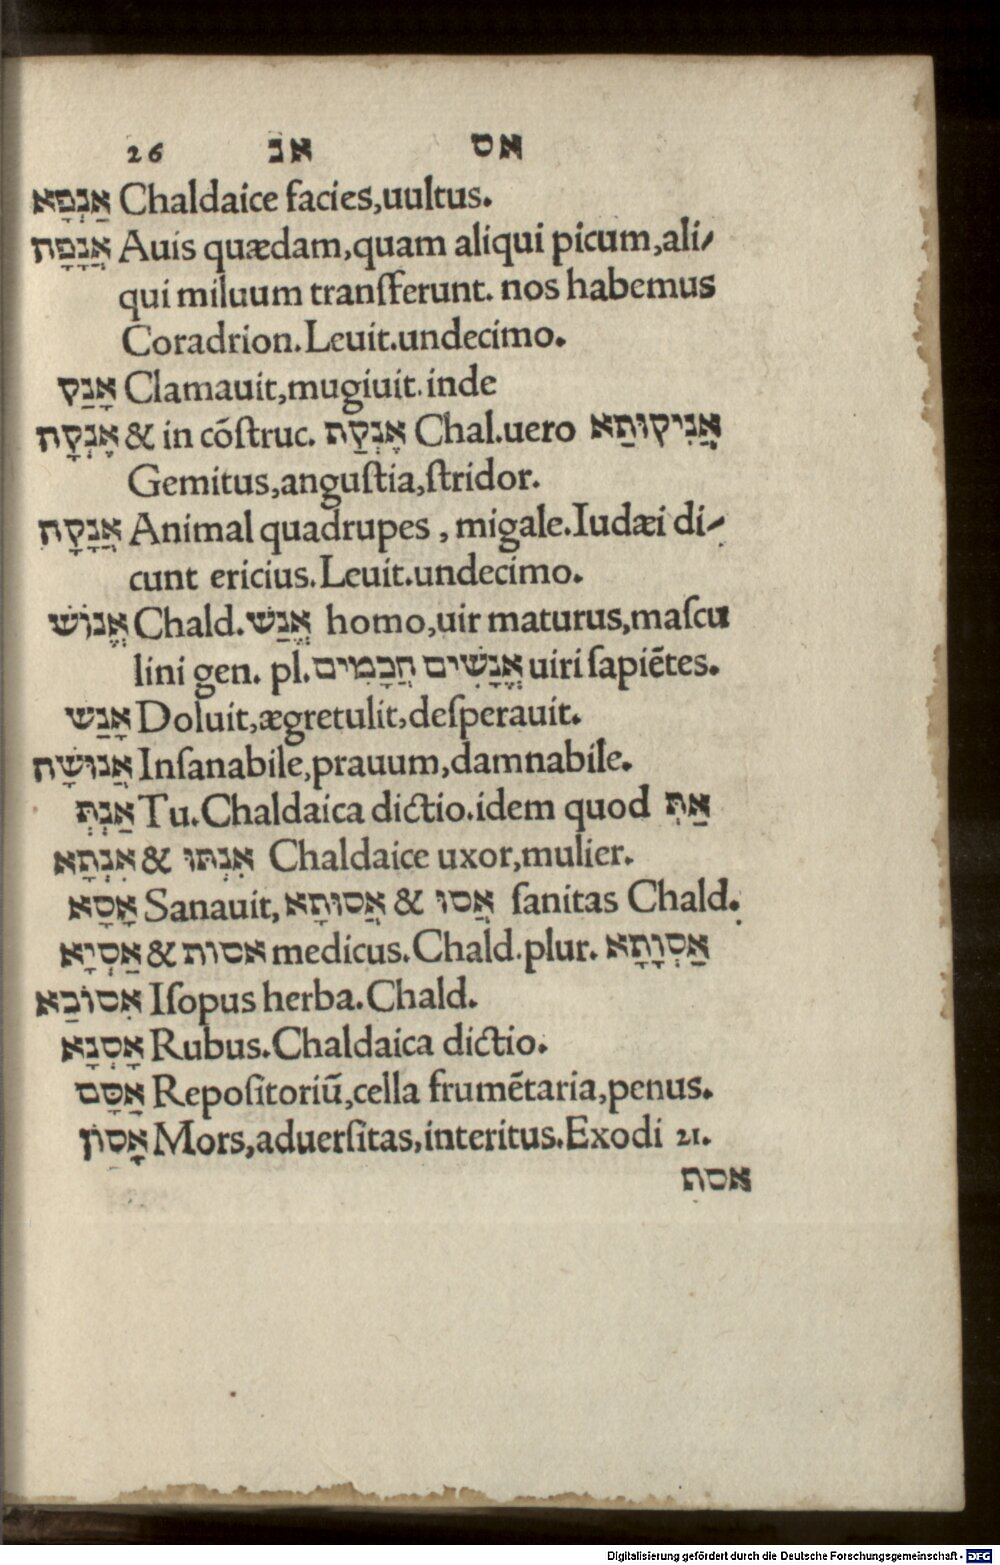 26 אנ אס
אַנְפָּא Chaldaice facies,uultus.
אֲנָפָה Auis quædam,quam aliqui picum,ali-
qui miluum transferunt. nos habemus
Coradrion.Leuit.undecimo.
אָנַק Clamauit,mugiuit. inde
אֶנְקָה & in cōstruc. אֶנְקַת Chal.uero אֲנִיקוּתַא
Gemitus,angustia,stridor.
אֲנָקָה Animal quadrupes , migale.Iudæi di-
cunt ericius.Leuit.undecimo.
אֱנוֹשׁ Chald. אֱנַשׁ homo,uir maturus,mascu
lini gen. pl. אֲנָשִׁים חֲכָמִים uiri sapiētes.
אָנַשׁ Doluit,ægretulit,desperauit.
אֲנוּשָׁה Insanabile,prauum,damnabile.
אַנְתְּ Tu.Chaldaica dictio.idem quod אַתְּ
אִנְתָא & אִנְתּוּ Chaldaice uxor,mulier.
אָסָא Sanauit, אֲסוּתָא & אֲסוּ sanitas Chald.
אַסְיָא & אסות medicus.Chald.plur. אַסְוָתָא
אִסוֹבַא Isopus herba.Chald.
אָסְנָא Rubus.Chaldaica dictio.
אֲסָם Repositoriū,cella frumētaria,penus.
אָסוֹן Mors,aduersitas,interitus.Exodi 21.
אסת
Digitalisierung gefördert durch die Deutsche Forschungsgemeinschaft - DFG